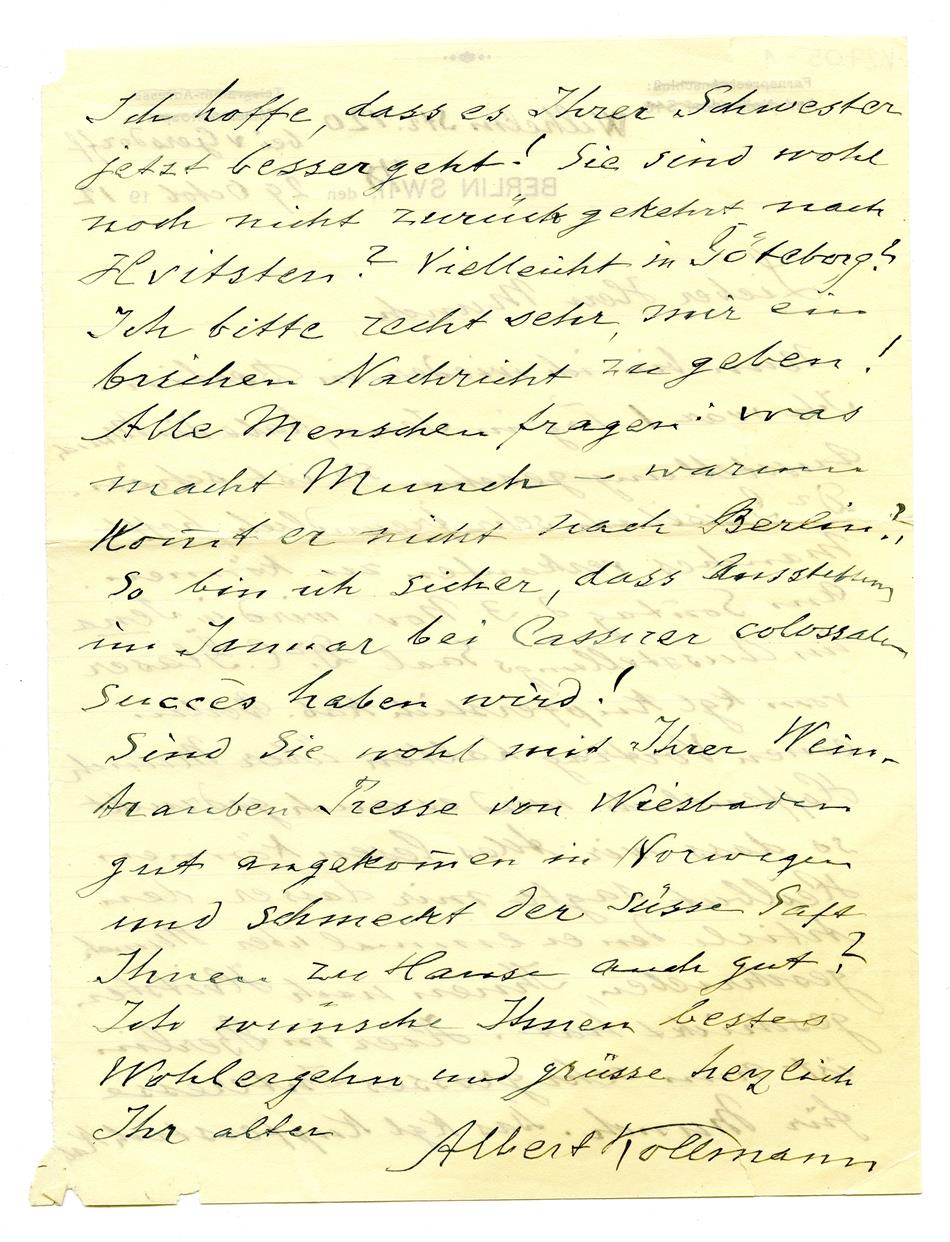 Ich hoffe, dass es Ihrer Schwester
jetzt besser geht! Sie sind wohl
noch nicht zurückgekehrt nach
Hvitsten? Vielleicht in Göteborg?
Ich bitte recht sehr, mir ein
bischen Nachricht zu geben!
Alle Menschen fragen: was
macht Munch – warum
kom̄t er nicht nach Berlin?!
So bin ich sicher, dass Ausstellung
im Januar bei Cassirer colossalen
succès haben wird!
Sind Sie wohl mit Ihrer Wein-
trauben Presse von Wiesbaden
gut angekom̄en in Norwegen
und schmeckt der süsse Saft
Ihnen zu Hause auch gut?
Ich wünsche Ihnen bestes
Wohlergehn und grüsse herzlich
Ihr alter
Albert Kollmann